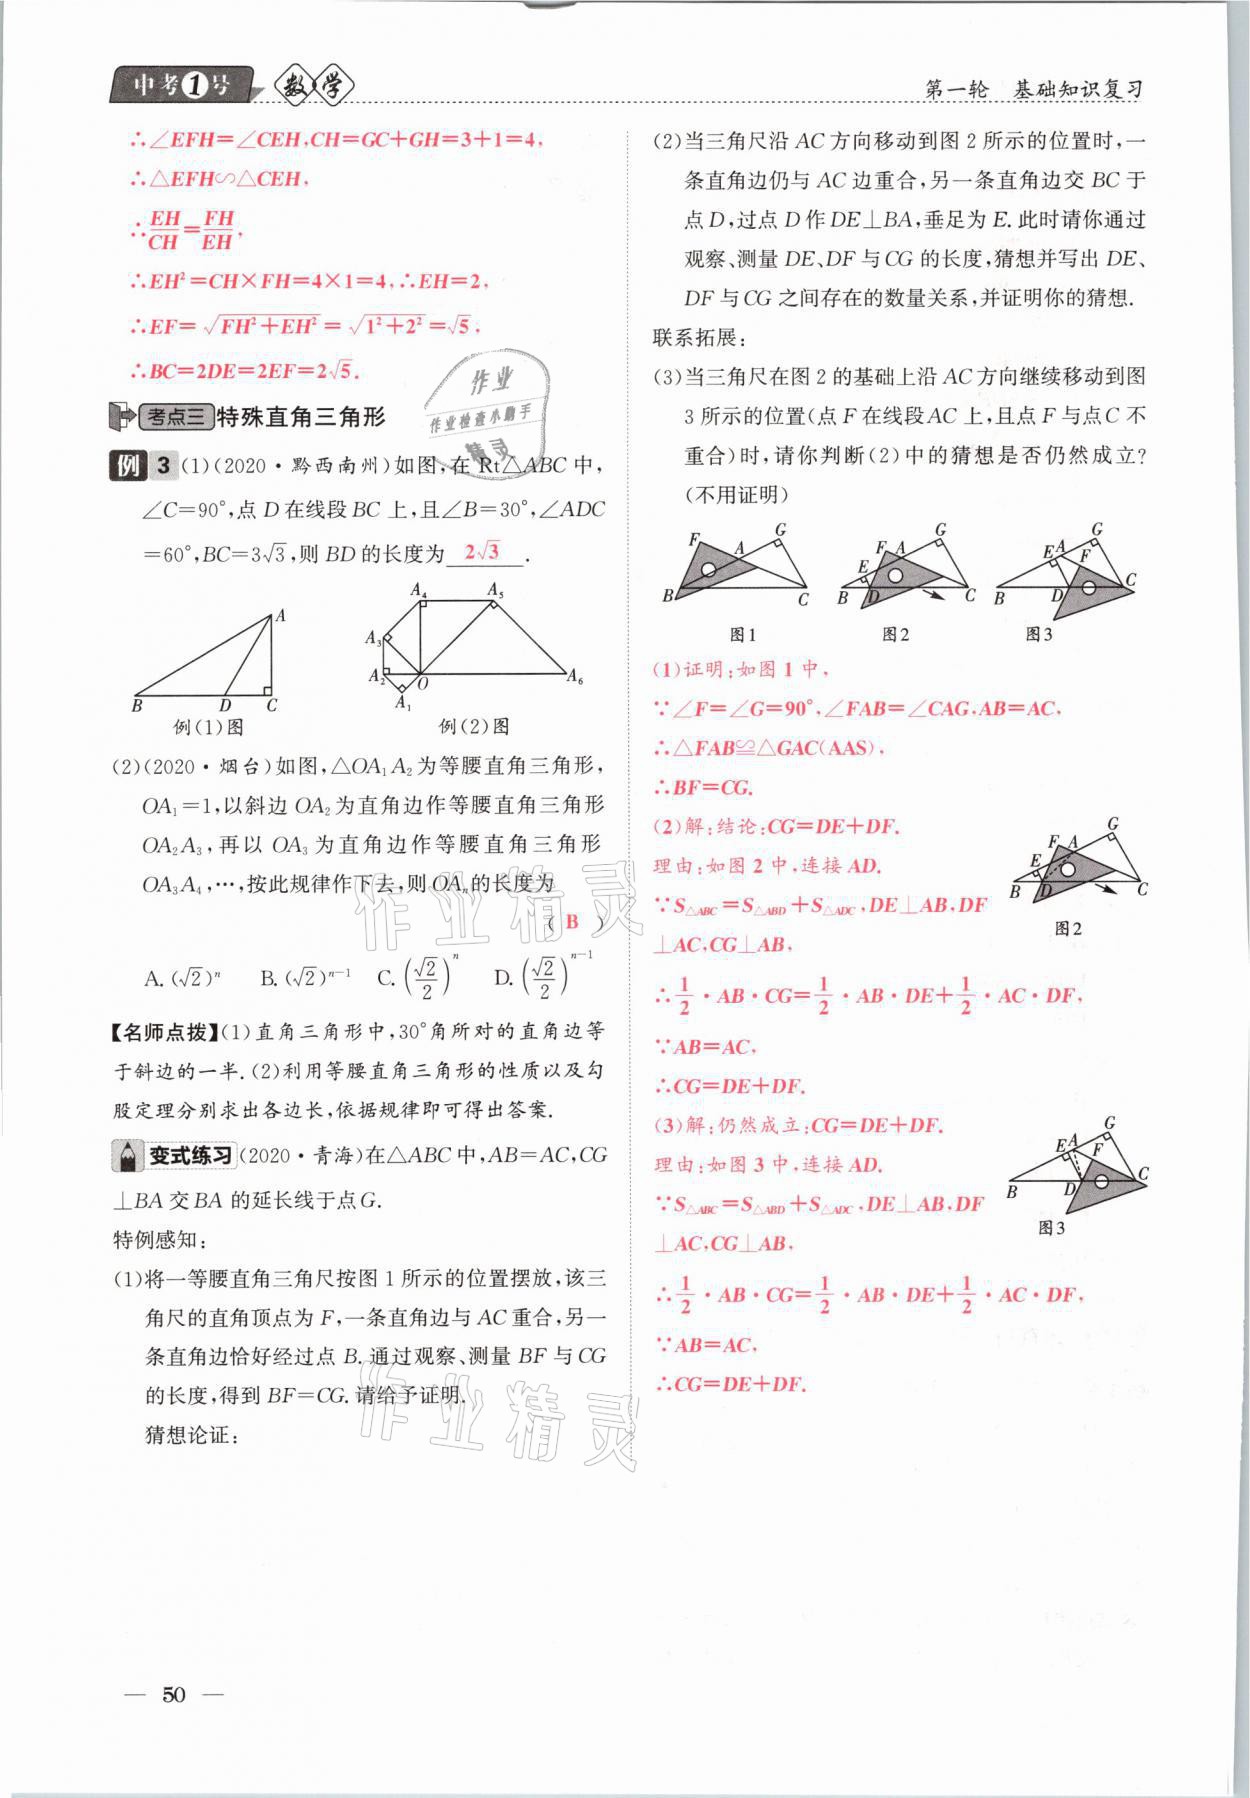 中考1号 数学
第一轮 基础知识复习
∴∠EFH=∠CEH,CH=GC+GH=3+1=4,
∴△EFH∽△CEH,
∴EH/CH=FH/EH,
∴EH²=CH×FH=4×1=4,∴EH=2,
∴EF=√(FH²+EH²)=√(1²+2²)=√5,
∴BC=2DE=2EF=2√5.
考点三 特殊直角三角形
例3 (1)(2020·黔西南州)如图,在Rt△ABC中,
∠C=90°,点D在线段BC上,且∠B=30°,∠ADC
=60°,BC=3√3,则BD的长度为 2√3 .
A
B D C
例(1)图
A₄ A₅
A₃
A₂ O A₆
A₁
例(2)图
(2)(2020·烟台)如图,△OA₁A₂为等腰直角三角形,
OA₁=1,以斜边OA₂为直角边作等腰直角三角形
OA₂A₃,再以OA₃为直角边作等腰直角三角形
OA₃A₄,…,按此规律作下去,则OAₙ的长度为
( B )
A.(√2)ⁿ B.(√2)ⁿ⁻¹ C.(√2/2)ⁿ D.(√2/2)ⁿ⁻¹
【名师点拨】(1)直角三角形中,30°角所对的直角边等
于斜边的一半.(2)利用等腰直角三角形的性质以及勾
股定理分别求出各边长,依据规律即可得出答案.
变式练习 (2020·青海)在△ABC中,AB=AC,CG
⊥BA交BA的延长线于点G.
特例感知:
(1)将一等腰直角三角尺按图1所示的位置摆放,该三
角尺的直角顶点为F,一条直角边与AC重合,另一
条直角边恰好经过点B.通过观察、测量BF与CG
的长度,得到BF=CG.请给予证明.
猜想论证:
(2)当三角尺沿AC方向移动到图2所示的位置时,一
条直角边仍与AC边重合,另一条直角边交BC于
点D,过点D作DE⊥BA,垂足为E.此时请你通过
观察、测量DE、DF与CG的长度,猜想并写出DE、
DF与CG之间存在的数量关系,并证明你的猜想.
联系拓展:
(3)当三角尺在图2的基础上沿AC方向继续移动到图
3所示的位置(点F在线段AC上,且点F与点C不
重合)时,请你判断(2)中的猜想是否仍然成立?
(不用证明)
F A G
B C
图1
F A G
E
B D C
图2
E A F G
B D C
图3
(1)证明:如图1中,
∵∠F=∠G=90°,∠FAB=∠CAG,AB=AC,
∴△FAB≌△GAC(AAS),
∴BF=CG.
(2)解:结论:CG=DE+DF.
理由:如图2中,连接AD.
∵S△ABC=S△ABD+S△ADC,DE⊥AB,DF
⊥AC,CG⊥AB,
F A G
E
B D C
图2
∴1/2·AB·CG=1/2·AB·DE+1/2·AC·DF,
∵AB=AC,
∴CG=DE+DF.
(3)解:仍然成立:CG=DE+DF.
理由:如图3中,连接AD.
∵S△ABC=S△ABD+S△ADC,DE⊥AB,DF
⊥AC,CG⊥AB,
E A F G
B D C
图3
∴1/2·AB·CG=1/2·AB·DE+1/2·AC·DF,
∵AB=AC,
∴CG=DE+DF.
作业
作业检查小助手
精灵
作业精灵
作业精灵
— 50 —